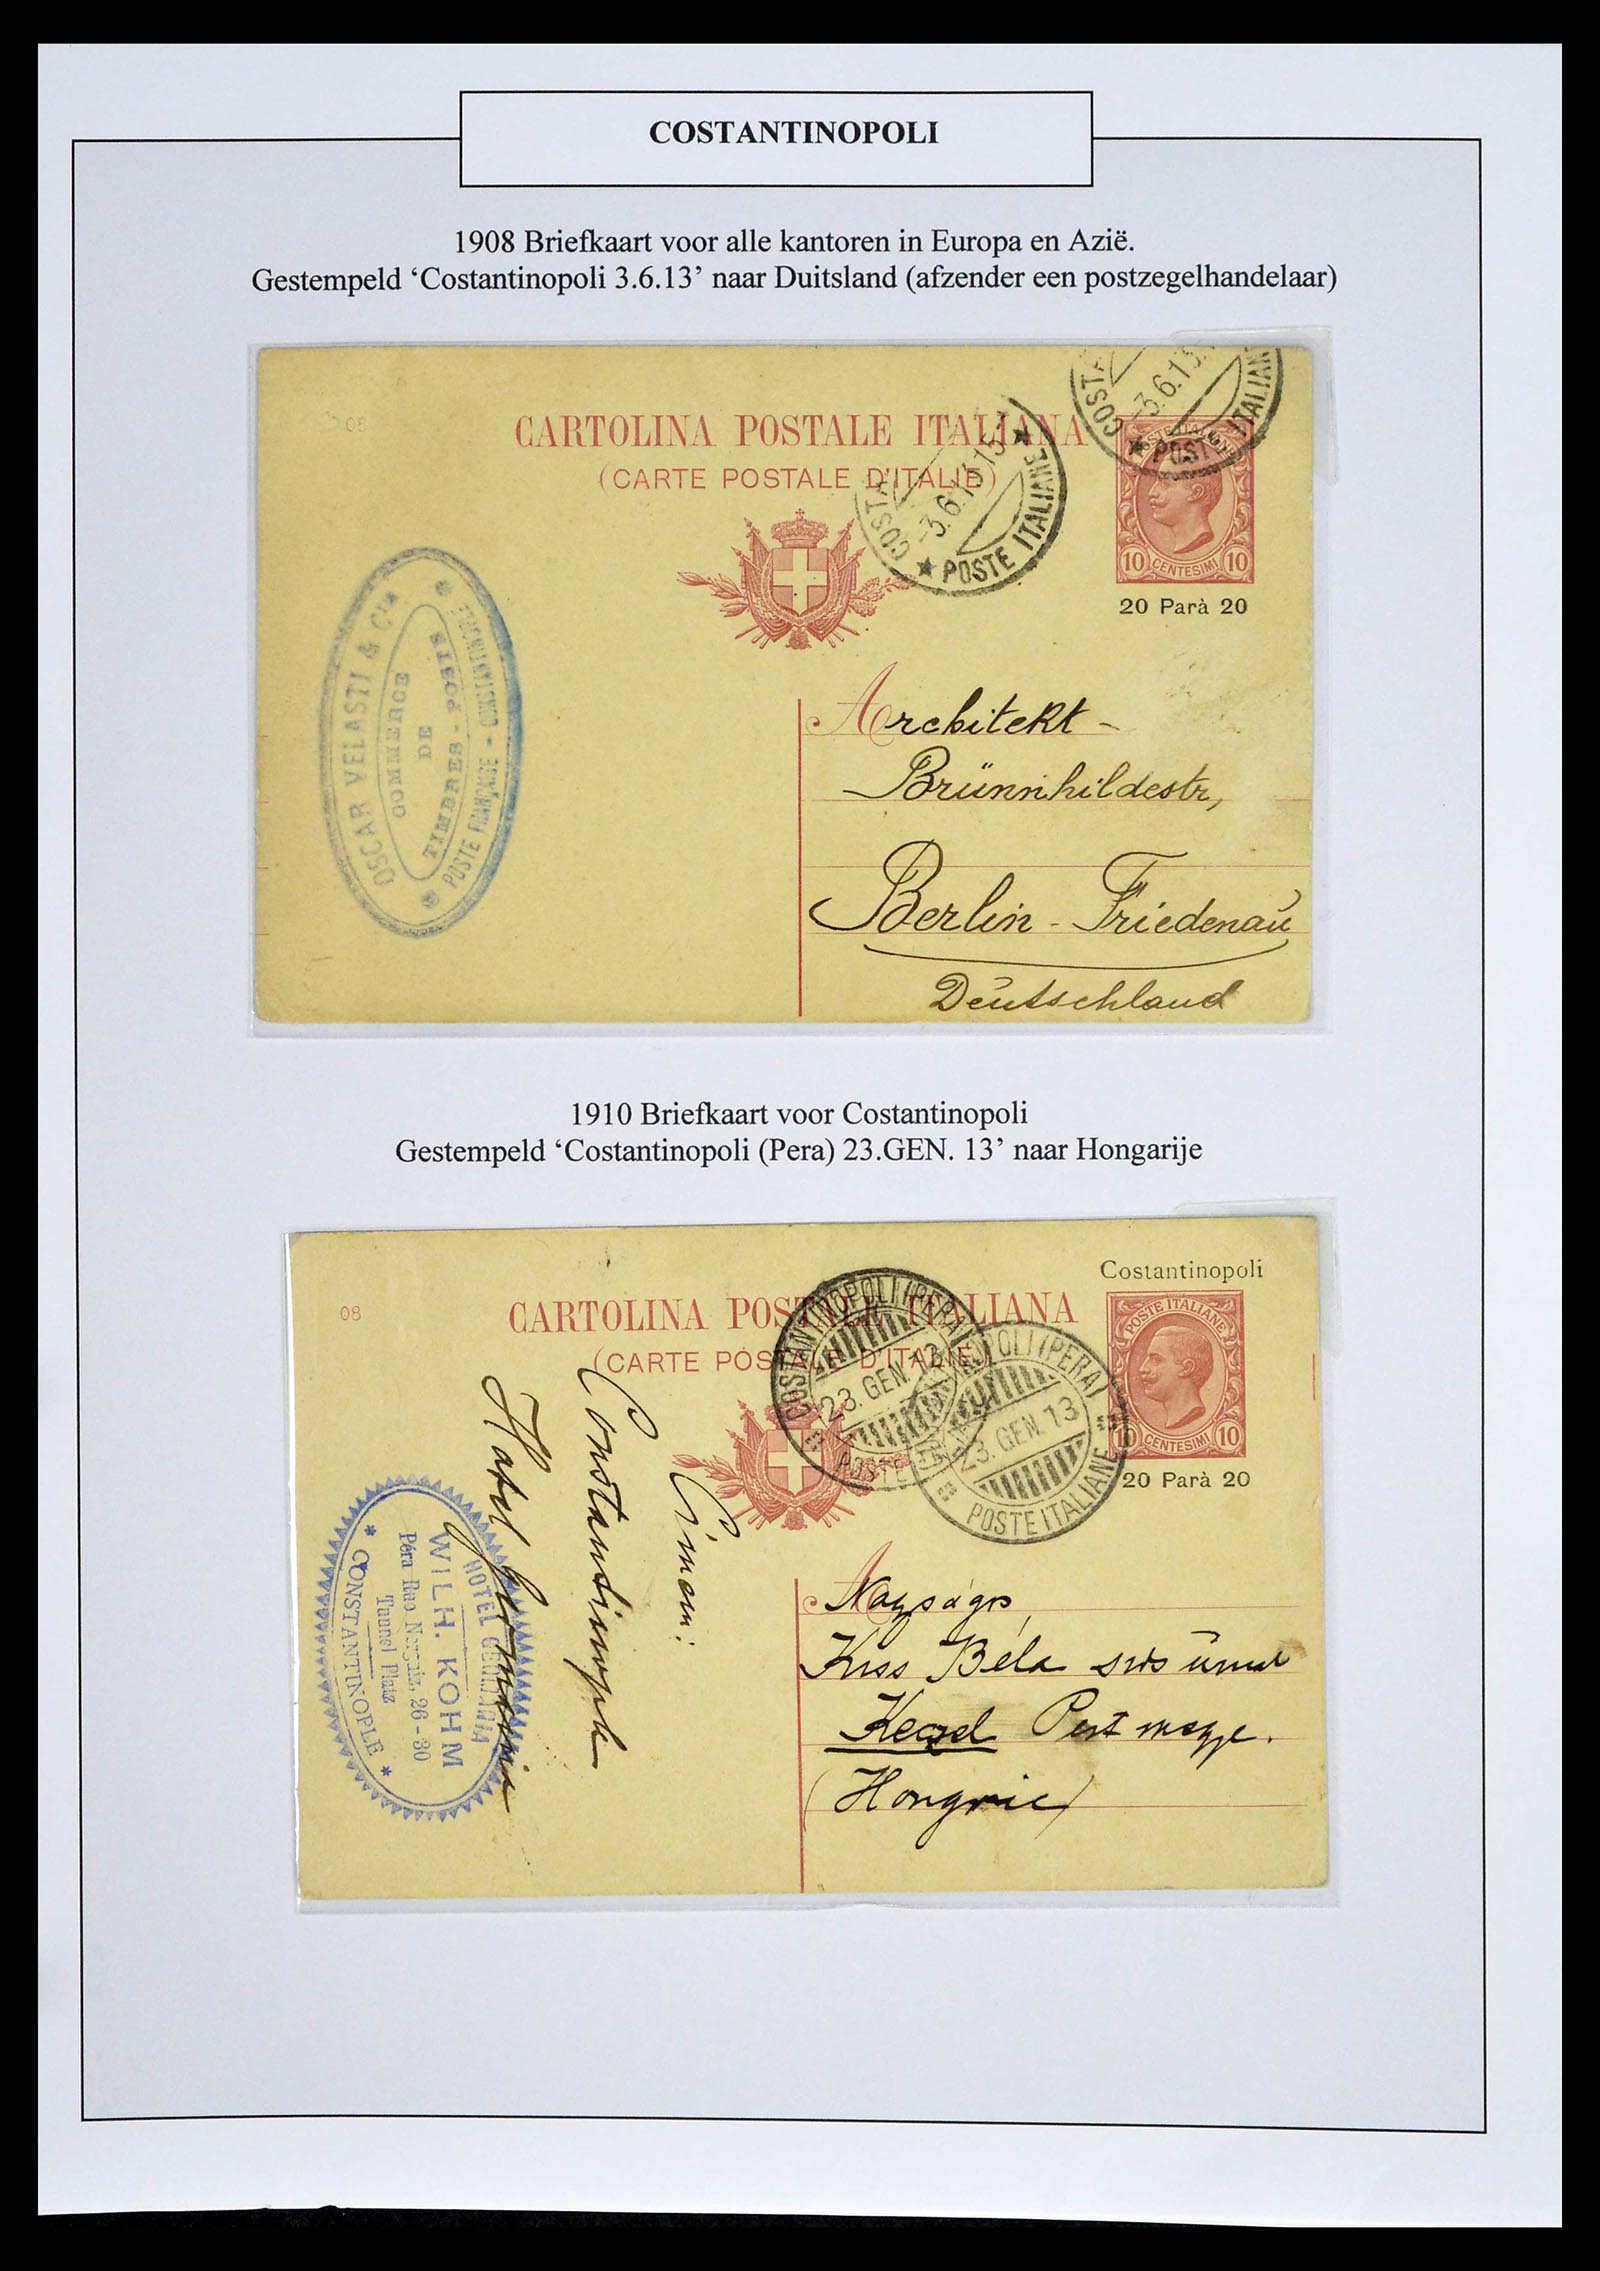 COSTANTINOPOLI
1908 Briefkaart voor alle kantoren in Europa en Azië.
Gestempeld ‘Costantinopoli 3.6.13’ naar Duitsland (afzender een postzegelhandelaar)
08
CARTOLINA POSTALE ITALIANA
(CARTE POSTALE D'ITALIE)
COSTA
-3.6.13.15
★ POSTE ITALIANE ★
COSTA
-3.6.13
★ POSTE ITALIAN
10 CENTESIMI 10
20 Parà 20
OSCAR VELASTI & Cie
COMMERCE
DE
TIMBRES-POSTE
POSTE FRANÇAISE - CONSTANTINOPLE
Architekt -
Brünnhildestr,
Berlin - Friedenau
Deutschland
1910 Briefkaart voor Costantinopoli
Gestempeld ‘Costantinopoli (Pera) 23.GEN. 13’ naar Hongarije
Costantinopoli
08
CARTOLINA POSTALE ITALIANA
(CARTE POSTALE D'ITALIE)
COSTANTINOPOLI (PERA)
23. GEN. 13
POSTE ITALIANE
OPOLI (PERA)
23. GEN. 13
POSTE ITALIANE
POSTE ITALIANE
10 CENTESIMI 10
20 Parà 20
Cimem:
Constantinople
Hotel Germania
HOTEL GERMANIA
WILH. KOHM
Péra Rue 26-30
Tunnel Platz
* CONSTANTINOPLE *
Nagyságos
Kiss Béla
Pest megye.
(Hongrie)